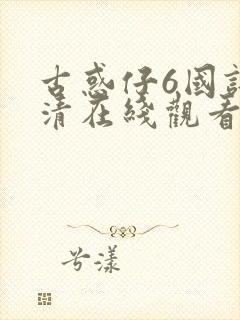 古惑仔6國
清在綫觀看
兮漾